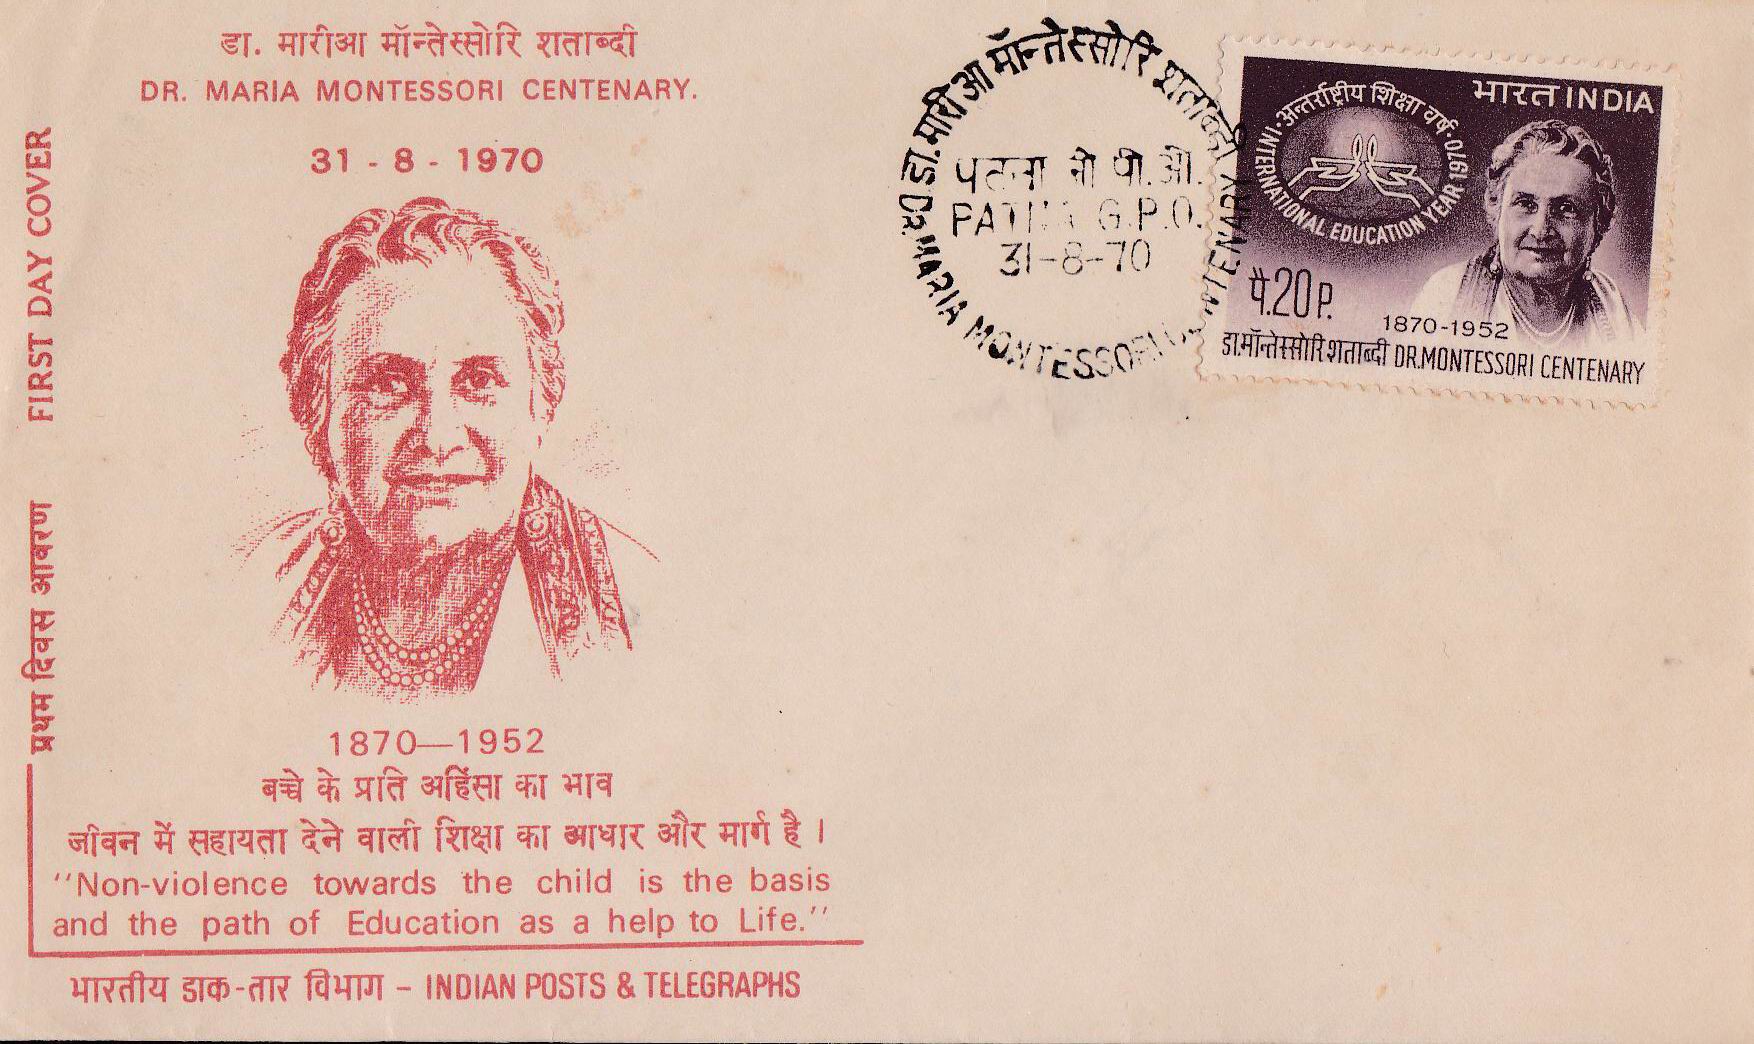 डा. मारीआ मॉन्तेस्सोरि शताब्दी
DR. MARIA MONTESSORI CENTENARY.
31 - 8 - 1970
FIRST DAY COVER
प्रथम दिवस आवरण
1870—1952
बच्चे के प्रति अहिंसा का भाव
जीवन में सहायता देने वाली शिक्षा का आधार और मार्ग है ।
''Non-violence towards the child is the basis
and the path of Education as a help to Life.''
भारतीय डाक-तार विभाग – INDIAN POSTS & TELEGRAPHS
डा. मारीआ मॉन्तेस्सोरि शताब्दी
पटना जी पी. ओ.
PATNA G.P.O.
31-8-70
DR. MARIA MONTESSORI CENTENARY
भारत INDIA
अन्तर्राष्ट्रीय शिक्षा वर्ष • 1970
INTERNATIONAL EDUCATION YEAR 1970
पै.20 P.
1870-1952
डा.मॉन्तेस्सोरि शताब्दी DR.MONTESSORI CENTENARY